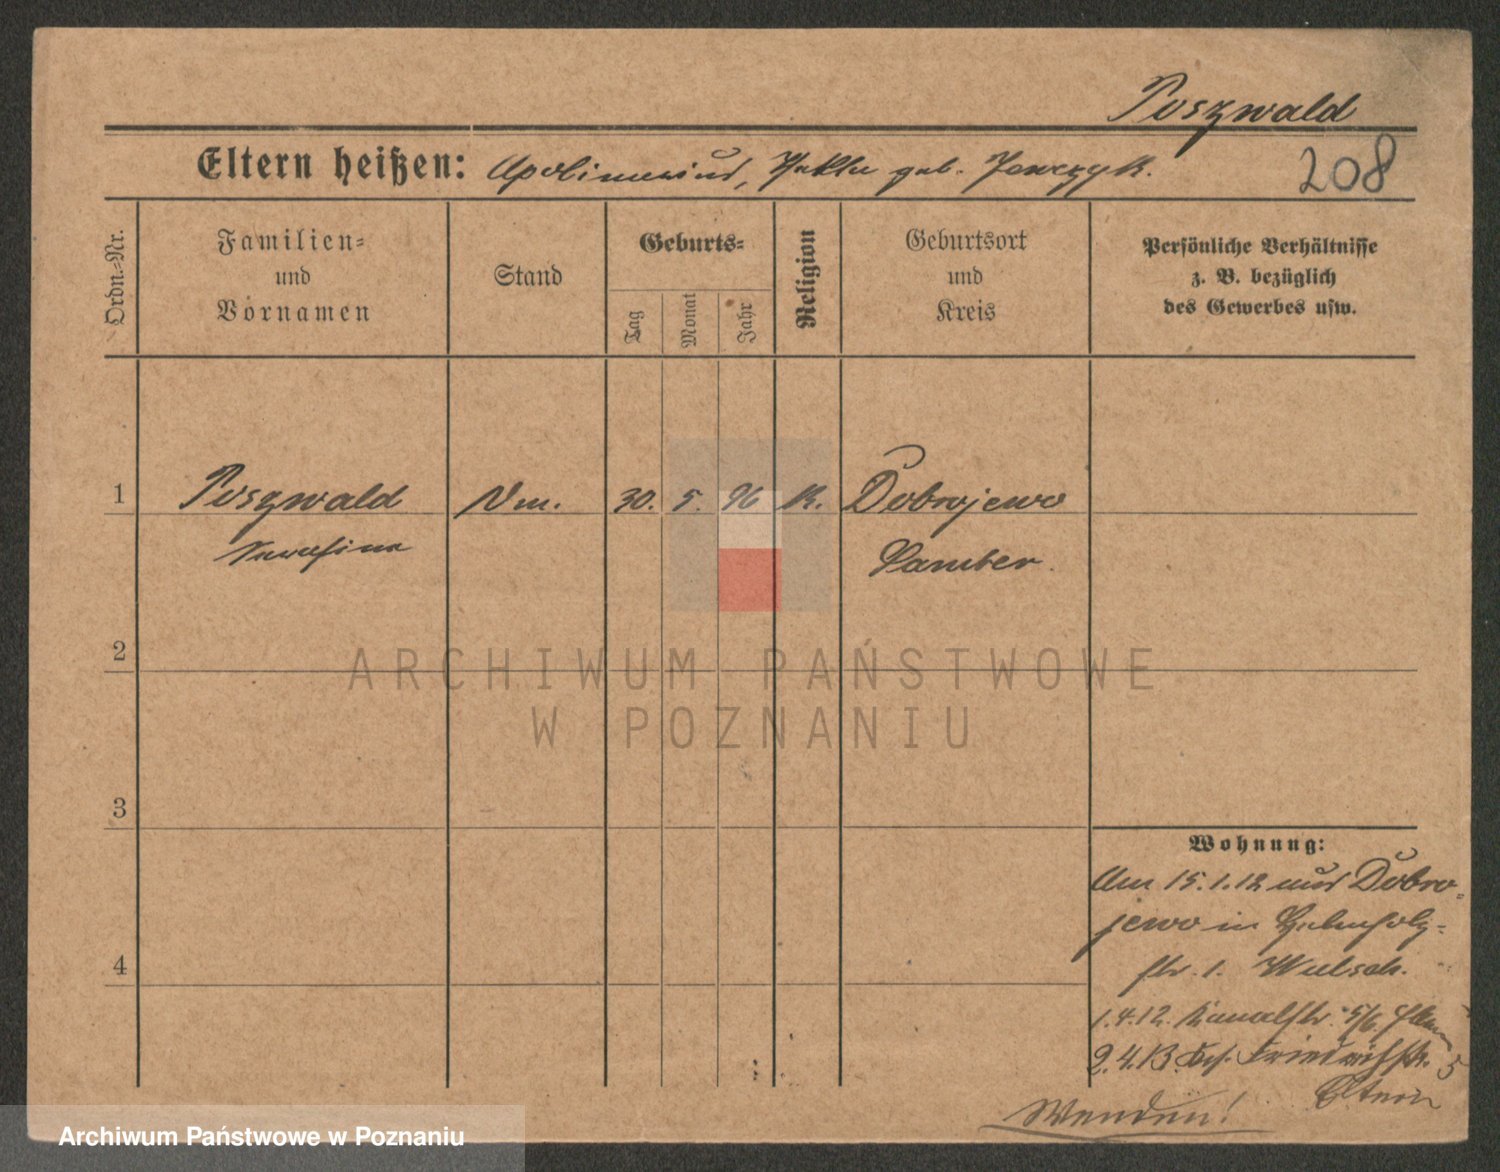 Poszwald
Eltern heißen: Apolinarius, Thekla geb. 208
Ordn.-Nr.
Familien-
und
Vornamen
Stand
Geburts-
Tag
Monat
Jahr
Religion
Geburtsort
und
Kreis
Persönliche Verhältnisse
z. B. bezüglich
des Gewerbes usw.
1 Poszwald Nm. 30. 5. 96 K. Dobrojewo
Serafina Samter.
2
ARCHIWUM PAŃSTWOWE
W POZNANIU
3
Wohnung:
Am 15.1.12 aus Dobro-
jewo in
str. 1.
4
1.4.12. Kanalstr. 5/6
2.4.13. Friedrichstr. 5
Eltern
Wenden!
Archiwum Państwowe w Poznaniu